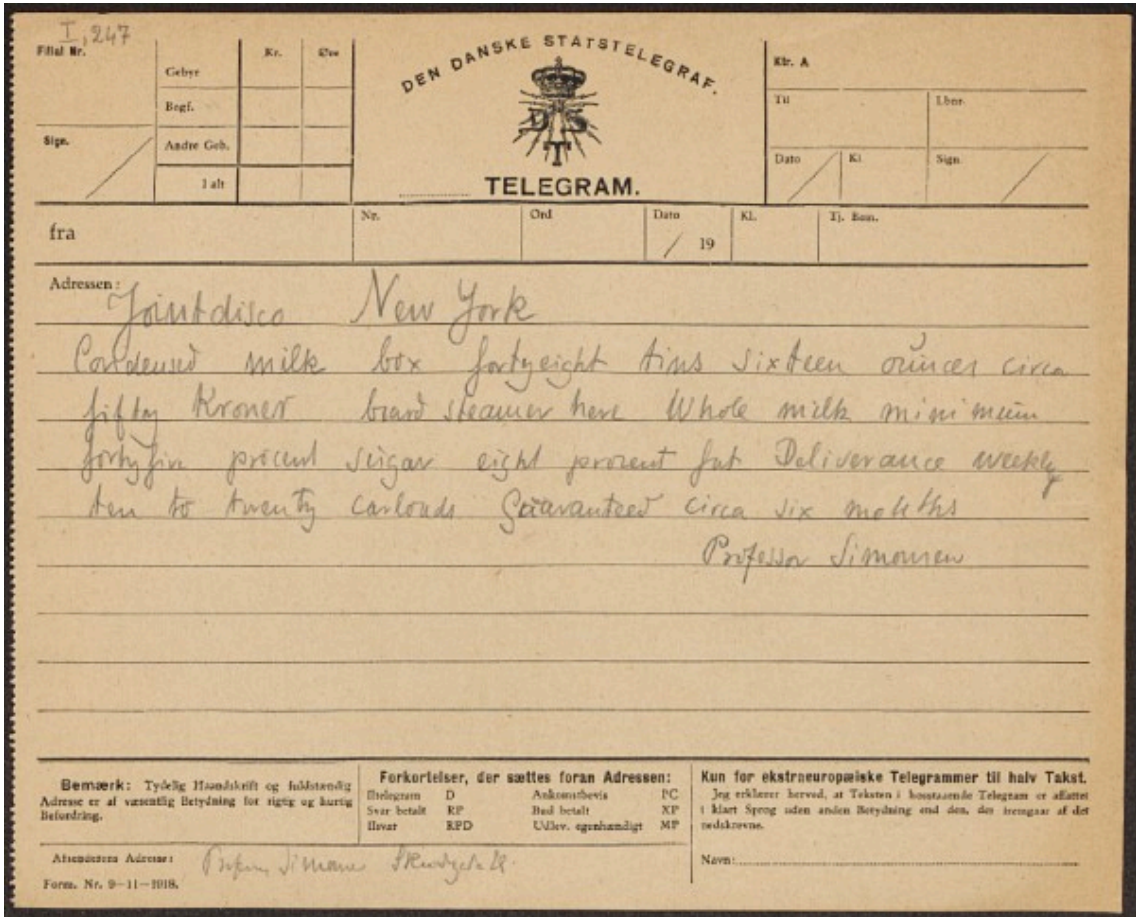 I, 247
Filial Nr.
Kr. Øre
Gebyr
Begf.
Sign.
Andre Geb.
I alt
DEN DANSKE STATSTELEGRAF.
D S
T
TELEGRAM.
Ktr. A
Til Lbnr.
Dato Kl. Sign.
fra Nr. Ord Dato / 19 Kl. Tj. Bem.
Adressen:
Jointdisco New York
Condensed milk box fortyeight tins sixteen ounces circa
fifty Kroner board steamer here Whole milk minimum
fortyfive procent sugar eight procent fat Deliverance weekly
ten to twenty carloads Guaranteed circa six months
Professor Simonsen
Bemærk: Tydelig Haandskrift og fuldstændig
Adresse er af væsentlig Betydning for rigtig og hurtig
Befordring.
Forkortelser, der sættes foran Adressen:
Iltelegram D Ankomstbevis PC
Svar betalt RP Bud betalt XP
Ilsvar RPD Udlev. egenhændigt MP
Kun for ekstraeuropæiske Telegrammer til halv Takst.
Jeg erklærer herved, at Teksten i hosstaaende Telegram er affattet
i klart Sprog uden anden Betydning end den, der fremgaar af det
nedskrevne.
Navn:
Afsenderens Adresse:
Form. Nr. 9-11-1918.